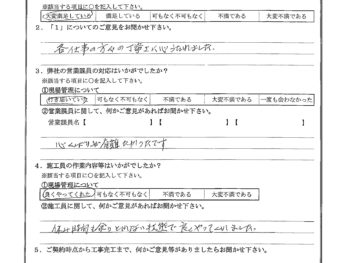 ※該当する項目に○を記入して下さい。
大変満足していた 満足している 可もなく不可もなく 不満である 大変不満である
2．「1」についてのご意見をお聞かせ下さい。
各仕事の方々の丁寧さに心うたれました。
3．弊社の営業議員の対応はいかがでしたか？
※該当する項目に○を記入して下さい。
①現場管理について
行き届いていた 可もなく不可もなく 不満である 大変不満である 一度も会わなかった
②営業議員に関して、何かご意見があればお聞かせ下さい。
営業議員名【 】【 】【 】
です
4．施工員の作業内容等はいかがでしたか？
※該当する項目に○を記入して下さい。
①現場管理について
良くやってくれた 可もなく不可もなく 不満である 大変不満である
②施工員に関して、何かご意見があればお聞かせ下さい。
休み時間も余りとれない状態で良くやって いました。
5．ご契約時点から工事完工まで、何かご意見等がありましたらお聞かせ下さい。